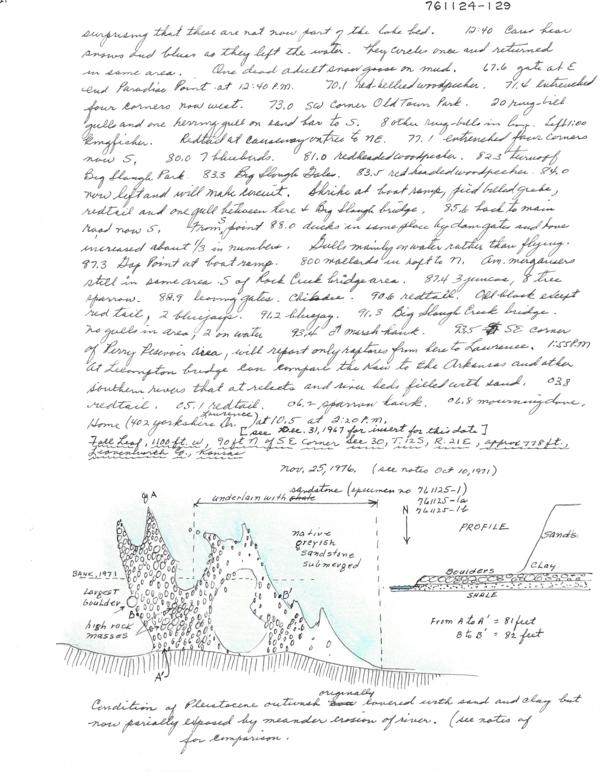 761124-129
surprising that these are not now part of the lake bed. 12:40 Cans hear
snows and blues as they left the water. They circles once and returned
in same area. One dead adult snow goose on mud. 67.6 gate at E
end Paradise Point at 12:40 P.M. 70.1 red-bellied woodpecker. 71.4 entrenched
four corners now west. 73.0 SW corner Old Town Park. 20 ring-bill
gulls and one herring gull on sand bar to S. 8 other ring-bells in Left 1:00
Kingfisher. Redtail at causeway entres to NE. 77.1 entrenched four corners
now S. 80.0 7 bluebirds. 81.0 redheaded woodpecker. 82.3 turnoff
Big Slough Park. 83.3 Big Slough Gates. 83.5 red headed woodpecker. 84.0
now left and will make circuit. Shrike at boat ramp, pied billed grebe,
redtail and one gull between here & Big Slough bridge. 85.6 back to main
road now S. From S point 88.0 ducks in same place by dam gates and have
increased about 1/3 in numbers. Gulls mainly on water rather than flying.
87.3 Gap Point at boat ramp. 800 mallards in raft to N. Am. mergansers
still in same area S of Rock Creek bridge area. 87.4 3 juncos, 8 tree
sparrow. 88.9 leaving gates. Chikadee. 90.6 redtail. All black except
red tail, 2 bluejays. 91.2 bluejay. 91.3 Big Slough Creek bridge.
no gulls in area, 2 on water 93.4 ♂ marsh hawk. 93.5 SE corner
of Perry Reservoir area, will report only raptores from here to Lawrence. 1:55 P.M.
At Lecompton bridge can compare the Kaw to the Arkansas and other
southern rivers that are relects and river beds filled with sand. 03.8
redtail. 05.1 redtail. 06.2 sparrow hawk. 06.8 mourning dove.
Home (402 Yorkshire Dr. Lawrence) at 10.5 at 2:20 P.M.
[see Dec. 31, 1967 for insert for this date]
Fall Leaf, 1100 ft. W, 90 ft N of SE Corner Sec 30, T.12S, R.21E, approx 778 ft.,
Leavenworth Co., Kansas
Nov. 25, 1976. (see notes Oct 10, 1971)
underlain with sandstone (specimen no 761125-1)
761125-1a
761125-1b
A
N
PROFILE
native
greyish
sandstone
submerged
Sands
Clay
Boulders
SHALE
BANK, 1971
LARGEST
boulder
B
B'
high rock
masses
A'
From A to A' = 81 feet
B to B' = 82 feet
Condition of Pleistocene outwash originally covered with sand and clay but
now parially exposed by meander erosion of river. (see notes of
for comparison.